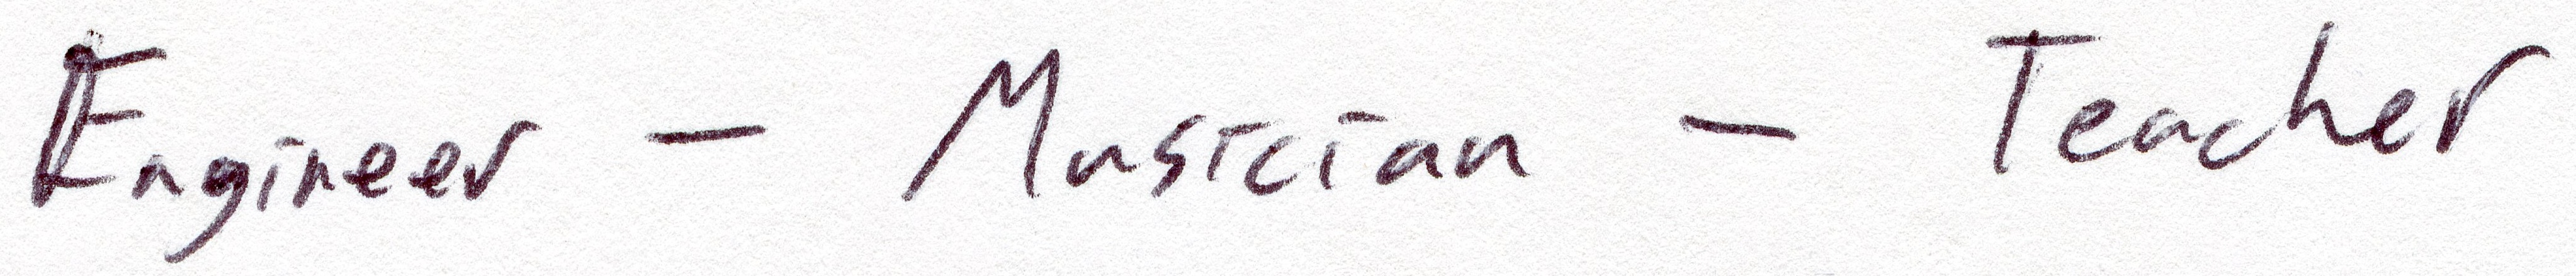 Engineer – Musician – Teacher